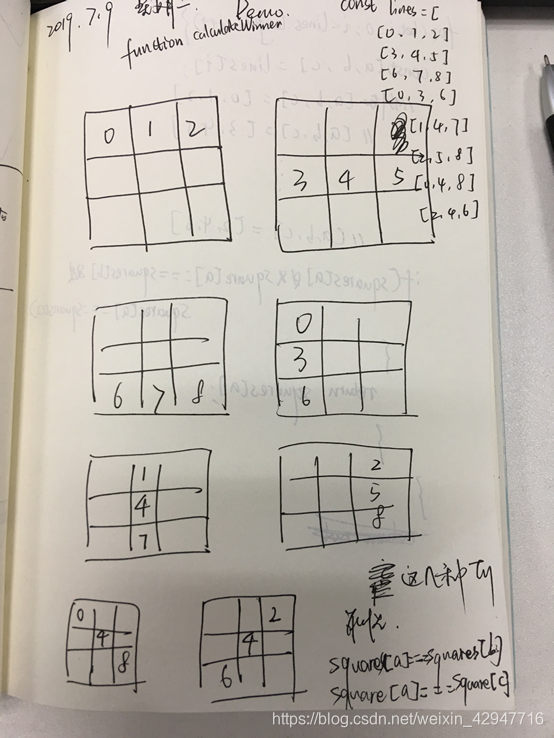 2019.7.9
Demo.
function calculateWinner
const lines=[
[0,1,2]
[3,4,5]
[6,7,8]
[0,3,6]
[1,4,7]
[2,5,8]
[0,4,8]
[2,4,6]
0 1 2
3 4 5
6 7 8
0
3
6
1
4
7
2
5
8
0
4
8
2
4
6
这八种
squares[a]==squares[b]
square[a]===square[c]
https://blog.csdn.net/weixin_42947716